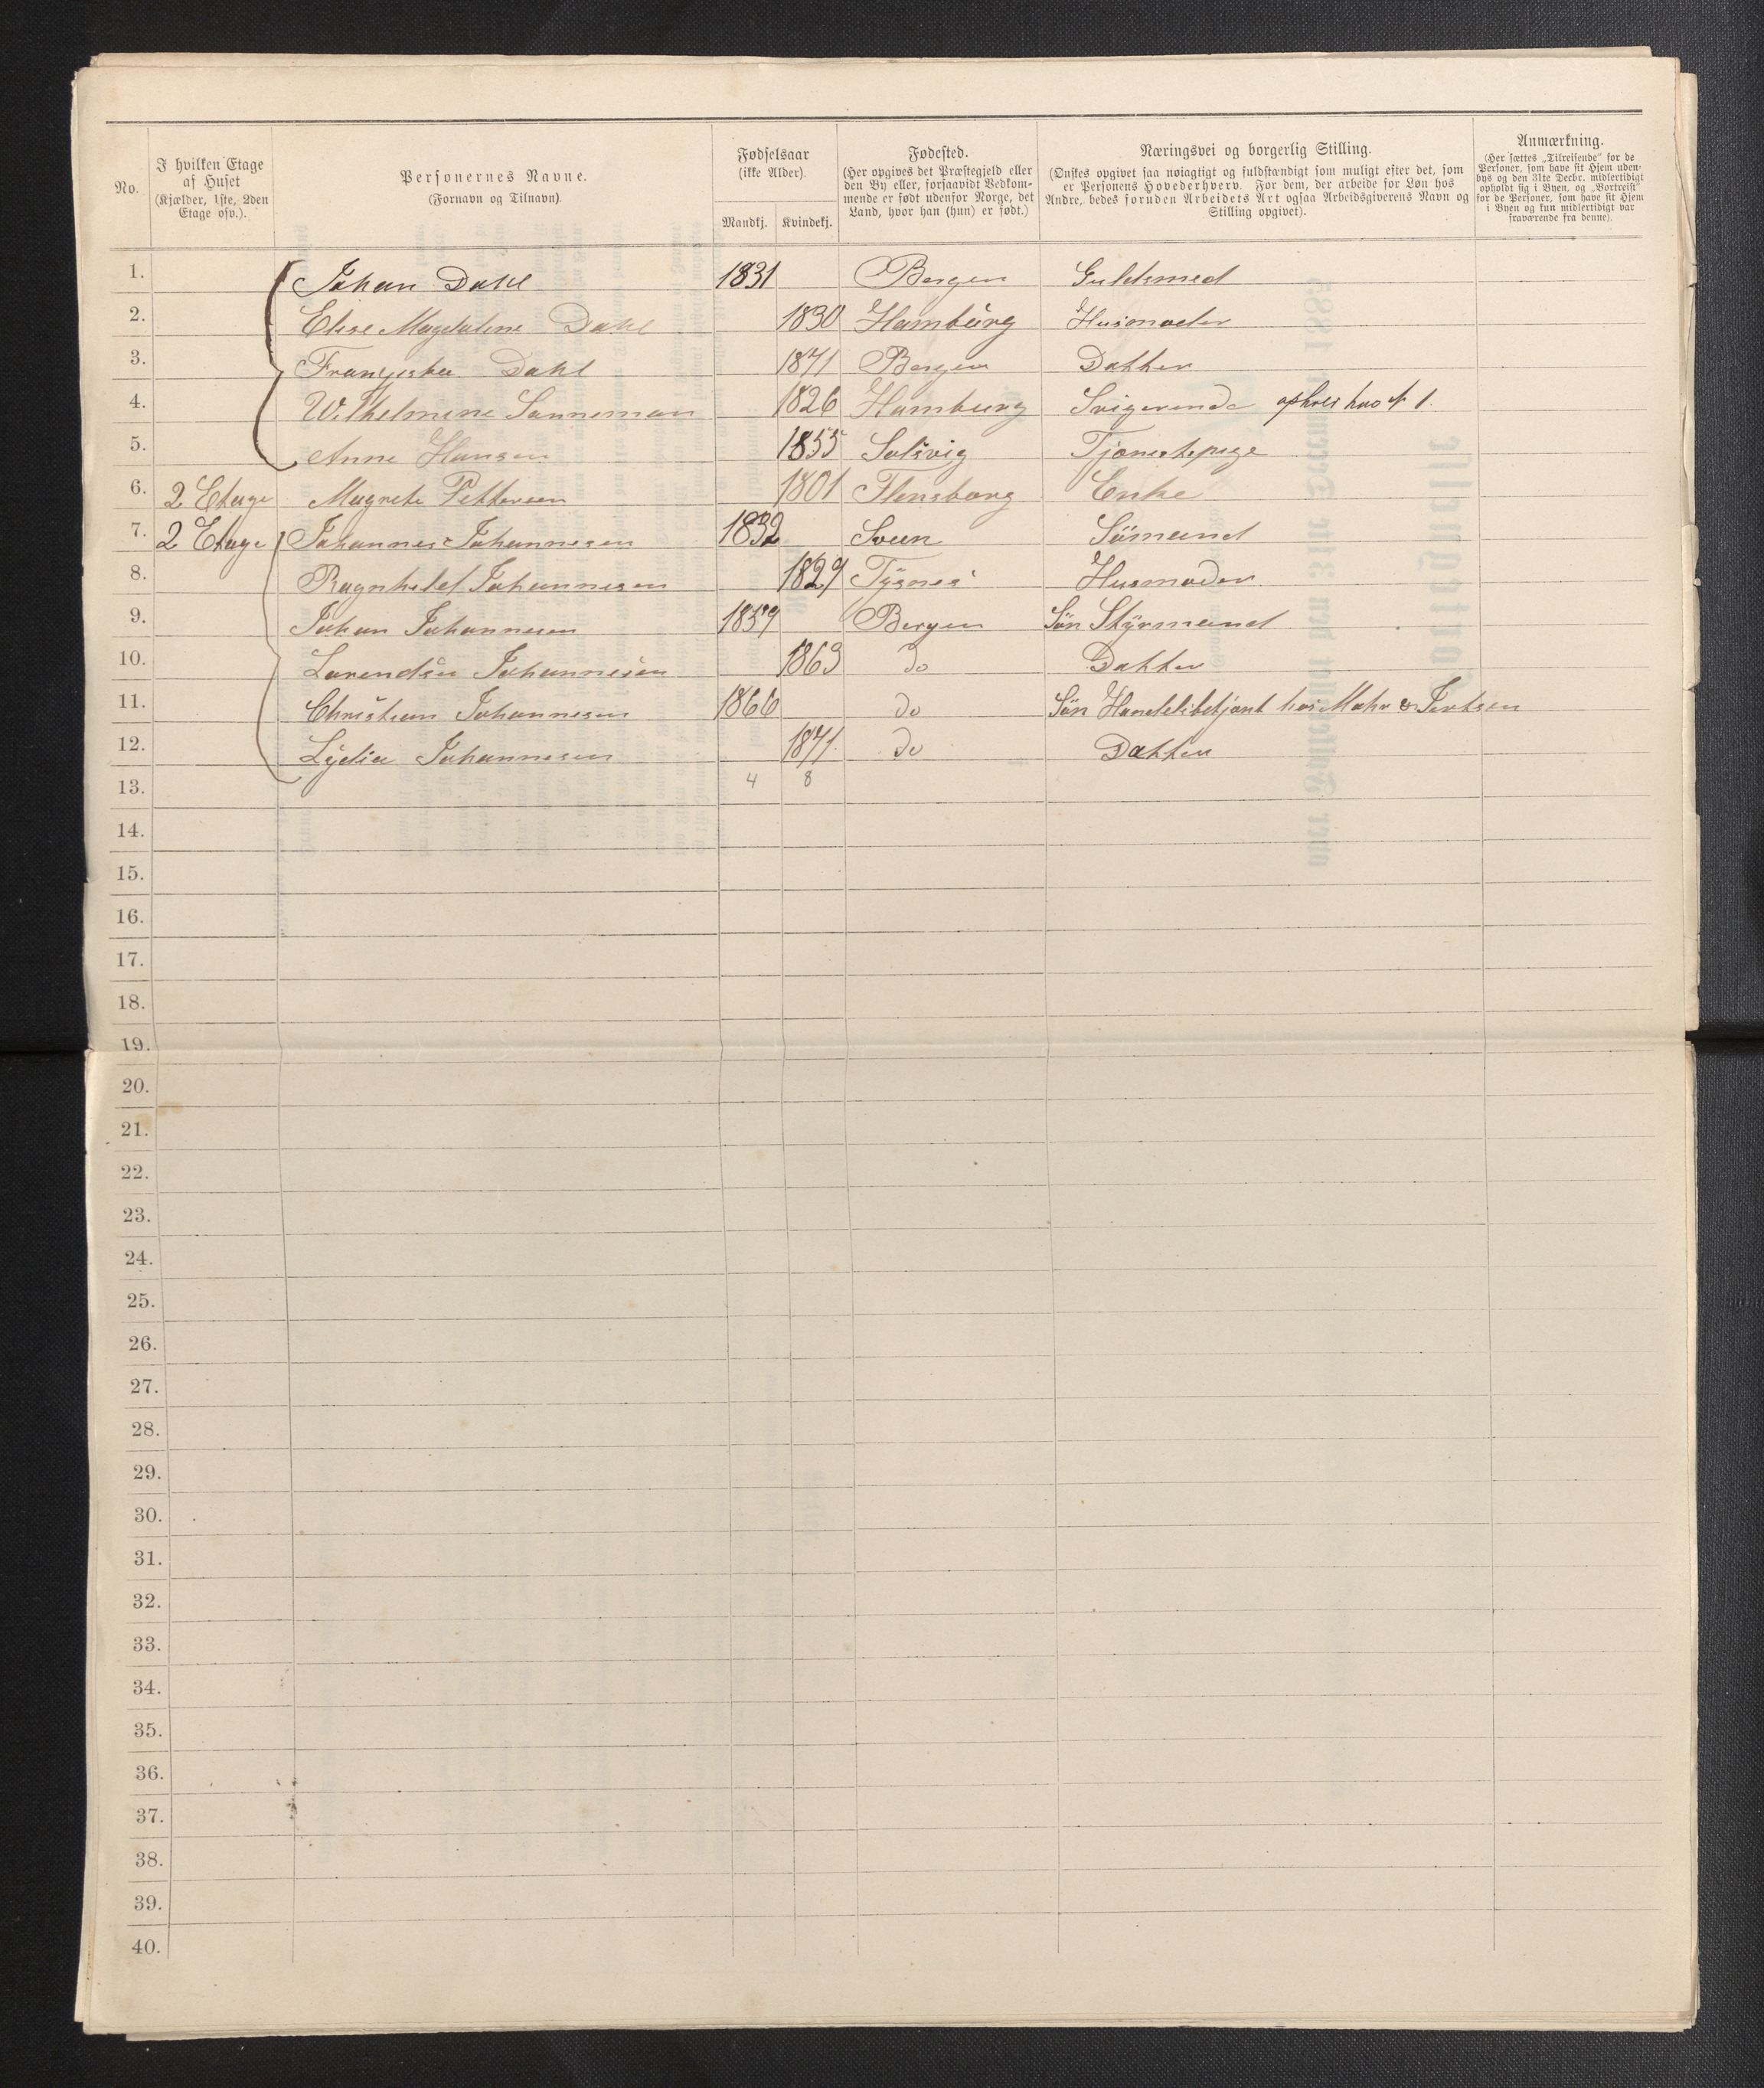 No.
I hvilken Etage
af Huset
(Kjælder, 1ste, 2den
Etage osv.).
Personernes Navne.
(Fornavn og Tilnavn).
Fødselsaar
(ikke Alder).
Mandkj. Kvindekj.
Fødested.
(Her opgives det Præstegjeld eller
den By eller, forsaavidt Vedkom-
mende er født udenfor Norge, det
Land, hvor han (hun) er født.)
Næringsvei og borgerlig Stilling.
(Ønskes opgivet saa nøiagtigt og fuldstændigt som muligt efter det, som
er Personens Hovederhverv. For dem, der arbeide for Løn hos
Andre, bedes foruden Arbeidets Art ogsaa Arbeidsgiverens Navn og
Stilling opgivet).
Anmærkning.
(Her sættes „Tilreisende" for de
Personer, som have sit Hjem uden-
bys og den 31te Decbr. midlertidigt
opholdt sig i Byen, og „Bortreist"
for de Personer, som have sit Hjem
i Byen og kun midlertidigt var
fraværende fra denne).
1. Johan Dahl 1831 Bergen Guldsmed
2. Elise Magdalene Dahl 1830 Hamburg Husmoder
3. Franziska Dahl 1871 Bergen Datter
4. Wilhelmine Sanneman 1826 Hamburg Svigerinde opholder hos No 1.
5. Anne Hansen 1855 Solsvig Tjenestepige
6. 2 Etage Magrete Pettersen 1801 Flensborg Enke
7. 2 Etage Johannes Johannesen 1832 Sveen Sömand
8. Ragnhild Johannesen 1829 Tysnes Husmoder
9. Johan Johannesen 1859 Bergen Sön Styrmand
10. Lorendse Johannesen 1863 do Datter
11. Christian Johannesen 1866 do Sön Handelsbetjent hos Mohr &
12. Lydia Johannesen 1871 do Datter
13. 4 8
14.
15.
16.
17.
18.
19.
20.
21.
22.
23.
24.
25.
26.
27.
28.
29.
30.
31.
32.
33.
34.
35.
36.
37.
38.
39.
40.